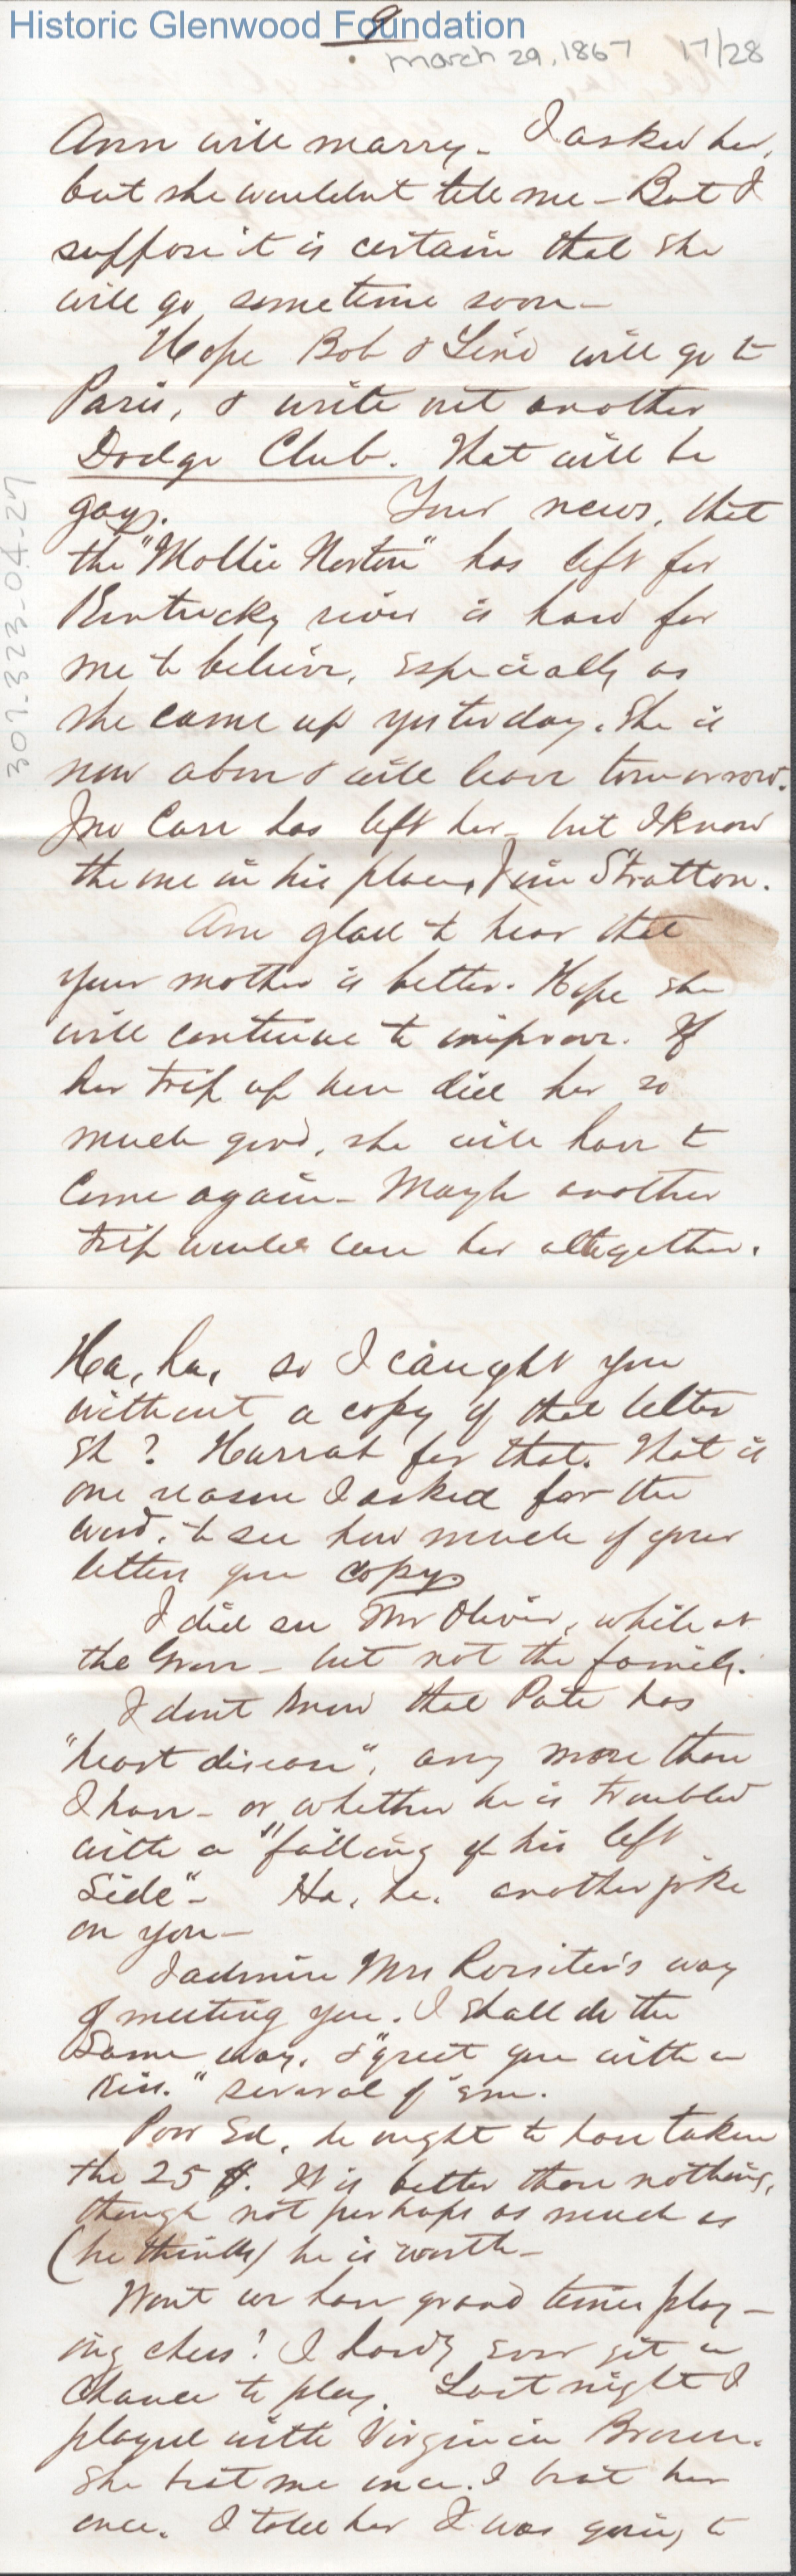 Historic Glenwood Foundation
9
March 29, 1867 17/28
307.323-04-27
Ann will marry - I asked her,
but she wouldnt tell me - But I
suppose it is certain that she
will go sometime soon -
Hope Bob & Line will go to
Paris, & write out another
Dodge Club. That will be
gay. Your news, that
the "Mollie Norton" has left for
Kentucky river is hard for
me to believe, especially as
she came up yesterday. She is
now above & will leave tomorrow.
Jno Carr has left her - but I know
the one in his place, Jim Stratton.
Am glad to hear that
your mother is better. Hope she
will continue to improve. If
her trip up here did her so
much good, she will have to
come again - Maybe another
trip would cure her altogether.
Ha, ha, so I caught you
without a copy of that letter
eh? Hurrah for that. That is
one reason I asked for the
word, to see how much of your
letters you copy.
I did see Mr Oliver, while at
the Grove - but not the family.
I dont know that Pate has
"heart disease", any more than
I have - or whether he is troubled
with a "falling of his left
side" - Ha, he. another joke
on you -
I admire Mrs Rossiter's way
of meeting you. I shall do the
same way, & "greet you with a
kiss." several of 'em.
Poor Ed, he ought to have taken
the 25 $. It is better than nothing,
though not perhaps as much as
(he thinks) he is worth -
Wont we have grand times play -
ing chess? I hardly ever get a
chance to play. Last night I
played with Virginia Brown.
She beat me once. I beat her
once. I told her I was going to